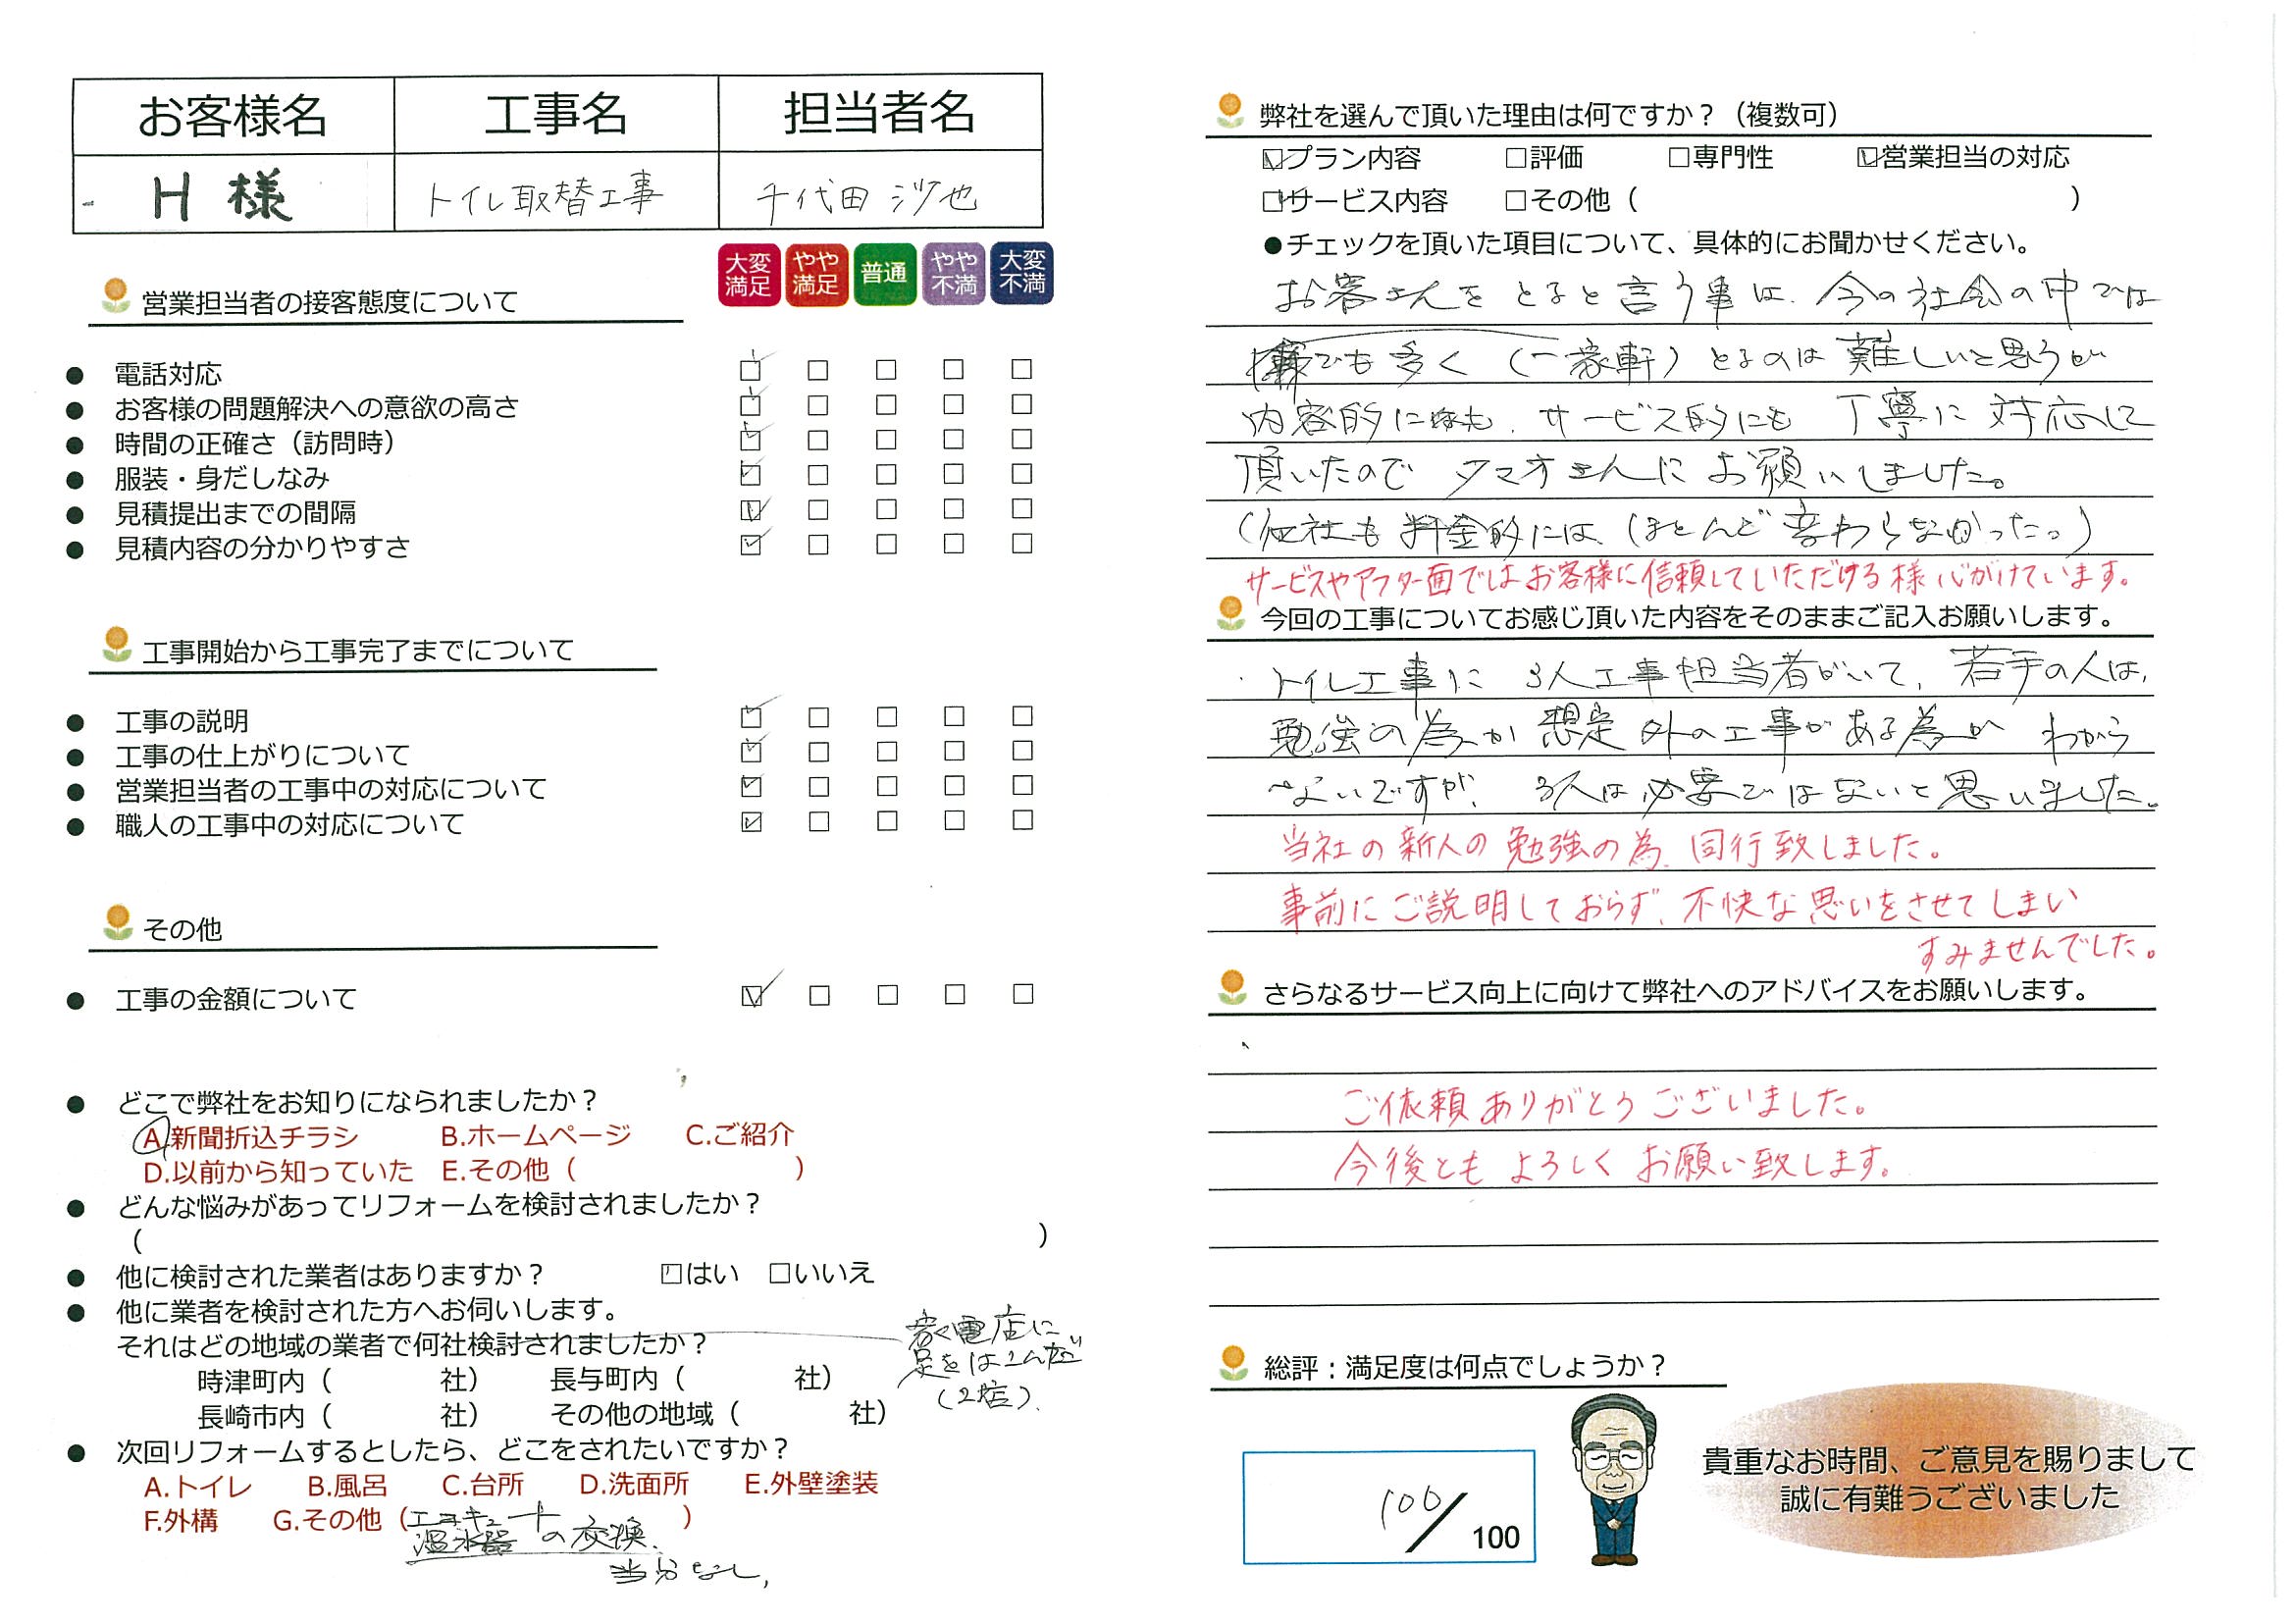 お客様名 工事名 担当者名
H 様 トイレ取替工事 千代田 沙也
大変満足 やや満足 普通 やや不満 大変不満
営業担当者の接客態度について
● 電話対応
● お客様の問題解決への意欲の高さ
● 時間の正確さ（訪問時）
● 服装・身だしなみ
● 見積提出までの間隔
● 見積内容の分かりやすさ
工事開始から工事完了までについて
● 工事の説明
● 工事の仕上がりについて
● 営業担当者の工事中の対応について
● 職人の工事中の対応について
その他
● 工事の金額について
● どこで弊社をお知りになられましたか？
A.新聞折込チラシ B.ホームページ C.ご紹介
D.以前から知っていた E.その他（ ）
● どんな悩みがあってリフォームを検討されましたか？
（ ）
● 他に検討された業者はありますか？ ☑はい □いいえ
● 他に業者を検討された方へお伺いします。
それはどの地域の業者で何社検討されましたか？
家電店に
足をはこんだ
(2店).
時津町内（ 社） 長与町内（ 社）
長崎市内（ 社） その他の地域（ 社）
● 次回リフォームするとしたら、どこをされたいですか？
A.トイレ B.風呂 C.台所 D.洗面所 E.外壁塗装
F.外構 G.その他（エコキュート ）
温水器の交換.
当分なし,
弊社を選んで頂いた理由は何ですか？（複数可）
☑プラン内容 □評価 □専門性 ☑営業担当の対応
☑サービス内容 □その他（ ）
●チェックを頂いた項目について、具体的にお聞かせください。
お客さんをとると言う事は、今の社会の中では
でも多く（一家軒）とるのは難しいと思うが
内容的にも、サービス的にも 丁寧に対応して
頂いたので タマオさんにお願いしました。
（他社も料金的には、（ほとんど変わらなかった。）
サービスやアフター面ではお客様に信頼していただける様心がけています。
今回の工事についてお感じ頂いた内容をそのままご記入お願いします。
・トイレ工事に 3人工事担当者がいて、若手の人は、
勉強の為か 想定外の工事がある為か わから
ないですが、3人は必要ではないと思いました。
当社の新人の勉強の為、同行致しました。
事前にご説明しておらず、不快な思いをさせてしまい
すみませんでした。
さらなるサービス向上に向けて弊社へのアドバイスをお願いします。
ご依頼ありがとうございました。
今後ともよろしくお願い致します。
総評：満足度は何点でしょうか？
100/100
貴重なお時間、ご意見を賜りまして
誠に有難うございました